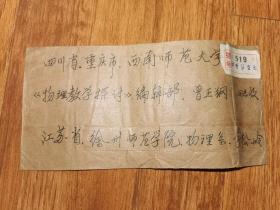 四川省、重庆市、西南师范大学
《物理教学探讨》编辑部、
江苏省、徐州师范学院、物理系、
519